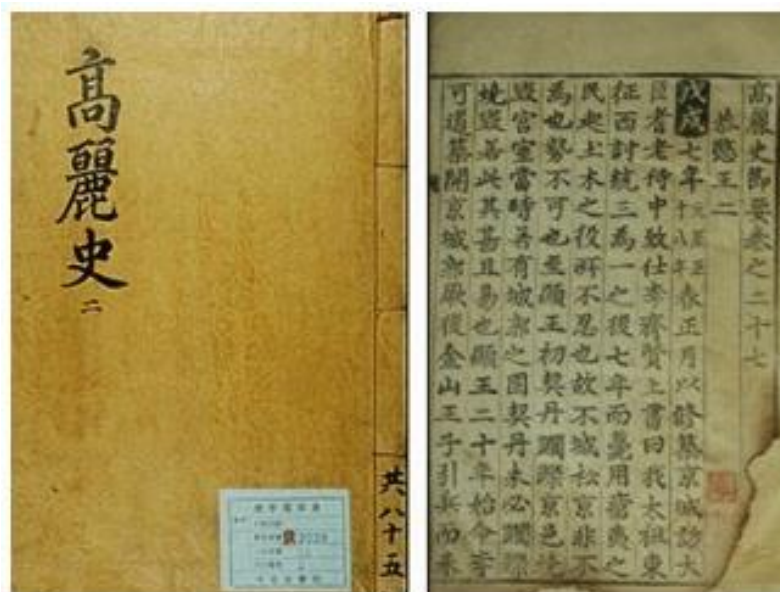 高麗史
二
共八十五
高麗史節要卷之二十七
恭愍王二
戊戌七年元至正十八年春正月以修築京城訪大
臣耆老侍中致仕李齊賢上書曰我太祖東
征西討統三為一之後七年而薨用瘡夷之
民起土木之役所不忍也故不城松京非不
為也勢不可也至顯王初契丹躪蹂京邑燒
毀宮室當時若有城郭之固契丹未必躪蹂
燒毀若此其甚且易也顯王二十年始令李
可道築開京城郭厥後金山王子引兵而來